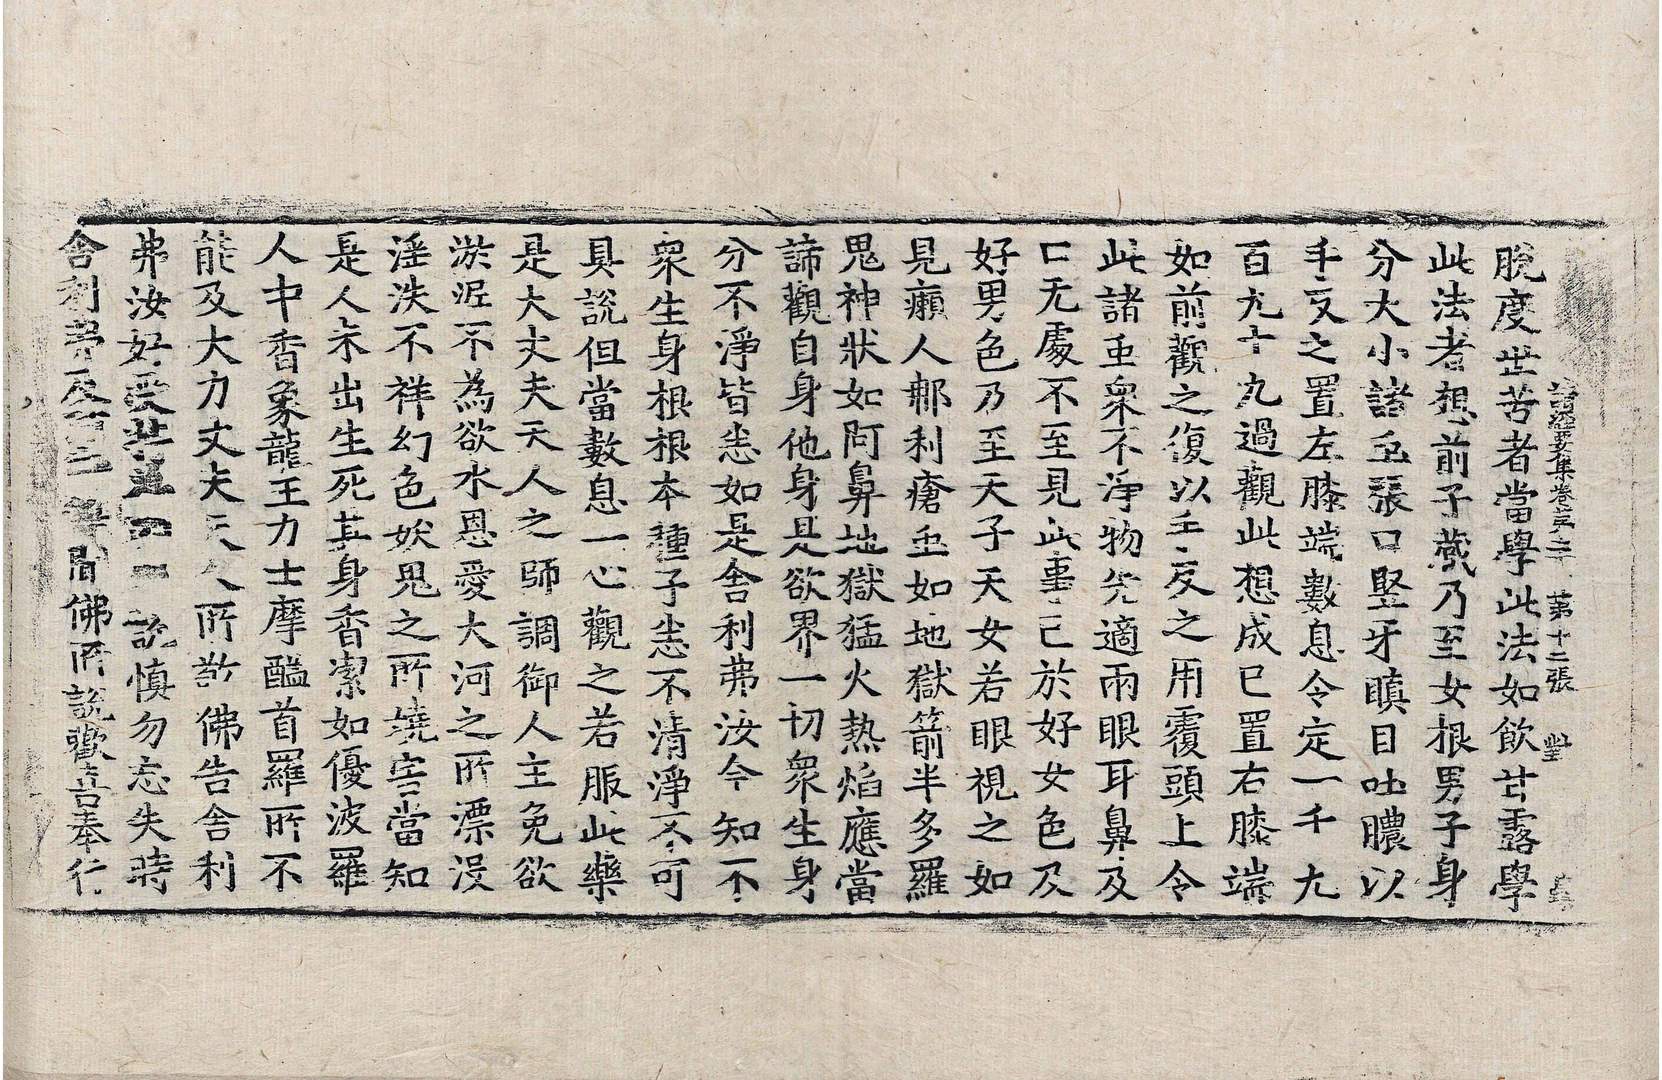 諸經要集卷 第十二張
脫度世苦者當學此法如飲甘露學
此法者想前子藏乃至女根男子身
分大小諸虫張口竪牙瞋目吐膿以
手反之置左膝端數息令定一千九
百九十九過觀此想成已置右膝端
如前觀之復以手反之用覆頭上令
此諸虫衆不淨物先適兩眼耳鼻及
口无處不至見此事已於好女色及
好男色乃至天子天女若眼視之如
見癩人那利瘡虫如地獄箭半多羅
鬼神狀如阿鼻地獄猛火熱焰應當
諦觀自身他身是欲界一切衆生身
分不淨皆悉如是舍利弗汝今知不
衆生身根根本種子悉不清淨不可
具說但當數息一心觀之若服此藥
是大丈夫天人之師調御人主免欲
淤泥不為欲水恩愛大河之所漂沒
淫泆不祥幻色妖鬼之所嬈害當知
是人未出生死其身香潔如優波羅
人中香象龍王力士摩醯首羅所不
能及大力丈夫天人所敬佛告舍利
弗汝好受持為四說慎勿忘失時
舍利弗及等聞佛所說歡喜奉行